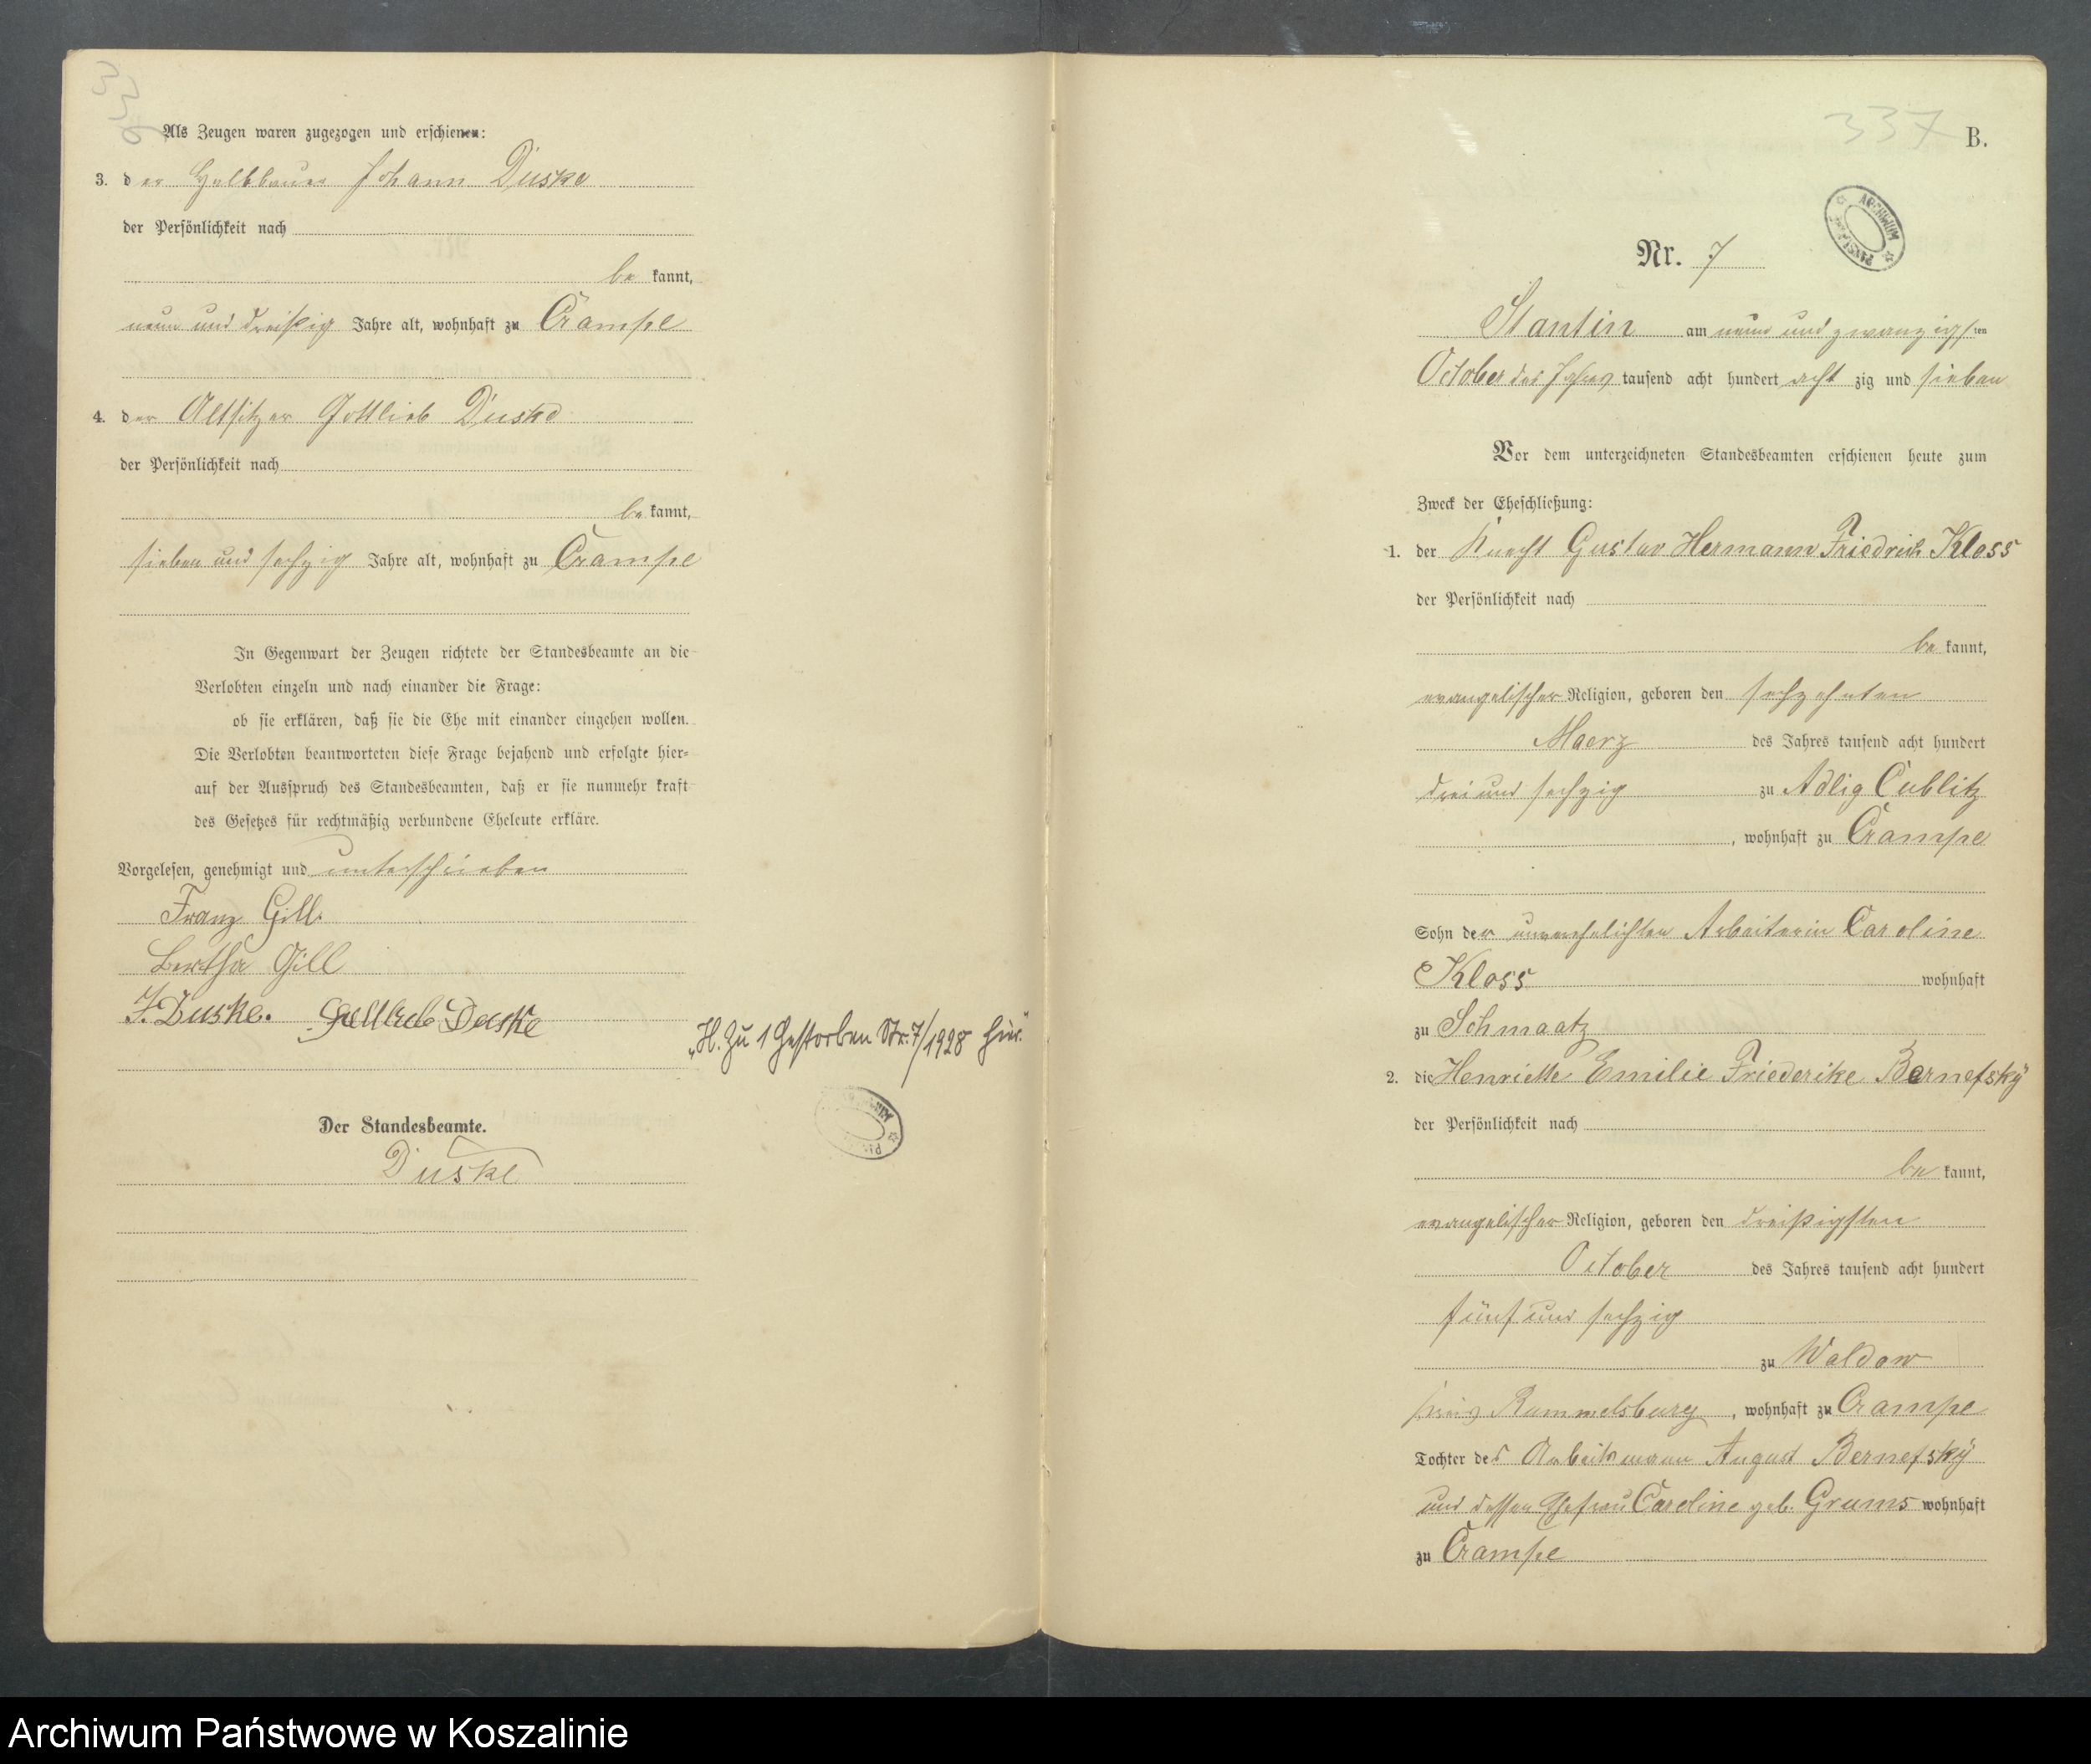 336
Als Zeugen waren zugezogen und erschienen:
3. der Halbbauer Johann Duske
der Persönlichkeit nach
be kannt,
neun und dreißig Jahre alt, wohnhaft zu Crampe
4. der Altsitzer Gottlieb Duske
der Persönlichkeit nach
be kannt,
sieben und sechzig Jahre alt, wohnhaft zu Crampe
In Gegenwart der Zeugen richtete der Standesbeamte an die
Verlobten einzeln und nach einander die Frage:
ob sie erklären, daß sie die Ehe mit einander eingehen wollen.
Die Verlobten beantworteten diese Frage bejahend und erfolgte hier-
auf der Ausspruch des Standesbeamten, daß er sie nunmehr kraft
des Gesetzes für rechtmäßig verbundene Eheleute erkläre.
Vorgelesen, genehmigt und unterschrieben
Franz Gill.
Bertha Gill
J. Duske. Gottlieb Duske
„H. Zu 1 Gestorben Str. 7/1928 hier."
Der Standesbeamte.
Duske
337
B.
ARCHIWUM
Nr. 7
Stantin am neun und zwanzigsten
October des Jahres tausend acht hundert acht zig und sieben
Vor dem unterzeichneten Standesbeamten erschienen heute zum
Zweck der Eheschließung:
1. der Knecht Gustav Hermann Friedrich Kloss
der Persönlichkeit nach
be kannt,
evangelischer Religion, geboren den sechzehnten
Maerz des Jahres tausend acht hundert
drei und sechzig zu Adlig Cublitz
, wohnhaft zu Crampe
Sohn der unverehelichten Arbeiterin Caroline
Kloss wohnhaft
zu Schmaatz
2. die Henriette Emilie Friederike Bernefsky
der Persönlichkeit nach
be kannt,
evangelischer Religion, geboren den dreißigsten
October des Jahres tausend acht hundert
fünf und sechzig
zu Waldow
Kreis Rummelsburg, wohnhaft zu Crampe
Tochter des Arbeitsmann August Bernefsky
und dessen Ehefrau Caroline geb. Grams wohnhaft
zu Crampe
Archiwum Państwowe w Koszalinie